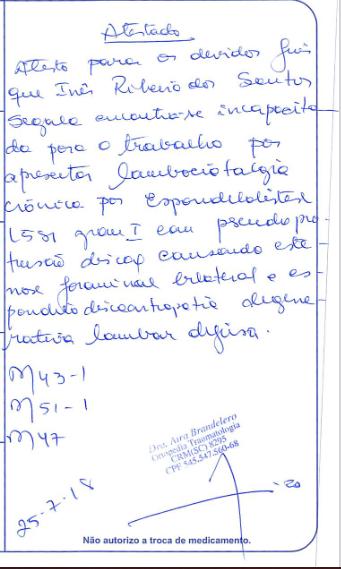 Atestado
Atesto para os devidos fins
que Inês Ribeiro dos Santos
Segala encontra-se incapacita
da para o trabalho por
apresentar lambociotalgia
crônica por Espondilolistese
L5S1 grau I com pseudo pro
trusão discal causando este
nose foraminal bilateral e es
pondilodiscoartropatia degene
rativa lombar difusa.
M43-1
M51-1
M47
Dra. Aira Brandelero
Ortopedia Traumatologia
CRM(SC) 8295
CPF 545.547.560-68
25-7-18
Não autorizo a troca de medicamento.